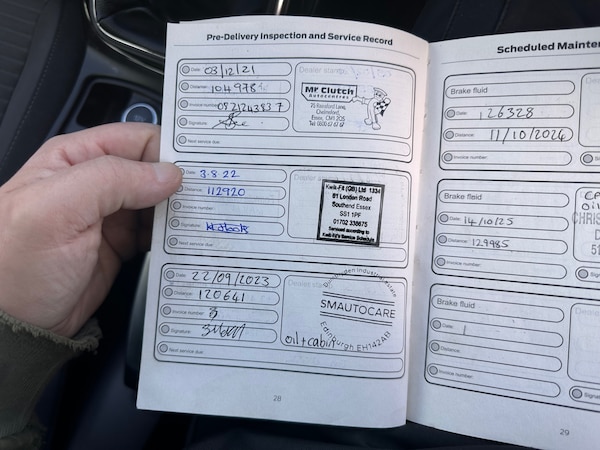 Pre-Delivery Inspection and Service Record
Date: 03/12/21
Distance: 104978
Invoice number:
Signature:
Next service due:
Dealer stamp:
Mr Clutch
Autocentres
Chelmsford,
Essex,
Date: 3.8.22
Distance: 112920
Invoice number:
Signature:
Next service due:
Kwik-Fit (GB) Ltd 1334
81 London Road
Southend Essex
SS1 1PF
01702 338675
Serviced according to
Kwik Fit's Service Schedule
Date: 22/09/2023
Distance: 120641
Invoice number:
Signature:
Next service due:
Dealer stamp:
Industrial Estate
SMAUTOCARE
Edinburgh EH142AB
oil + cabin
28
Scheduled Mainte
Brake fluid
Date: 126328
Distance: 11/10/2024
Invoice number:
Brake fluid
Date: 14/10/25
Distance: 129985
Invoice number:
CHRIS
Brake fluid
Date:
Distance:
Invoice number:
29